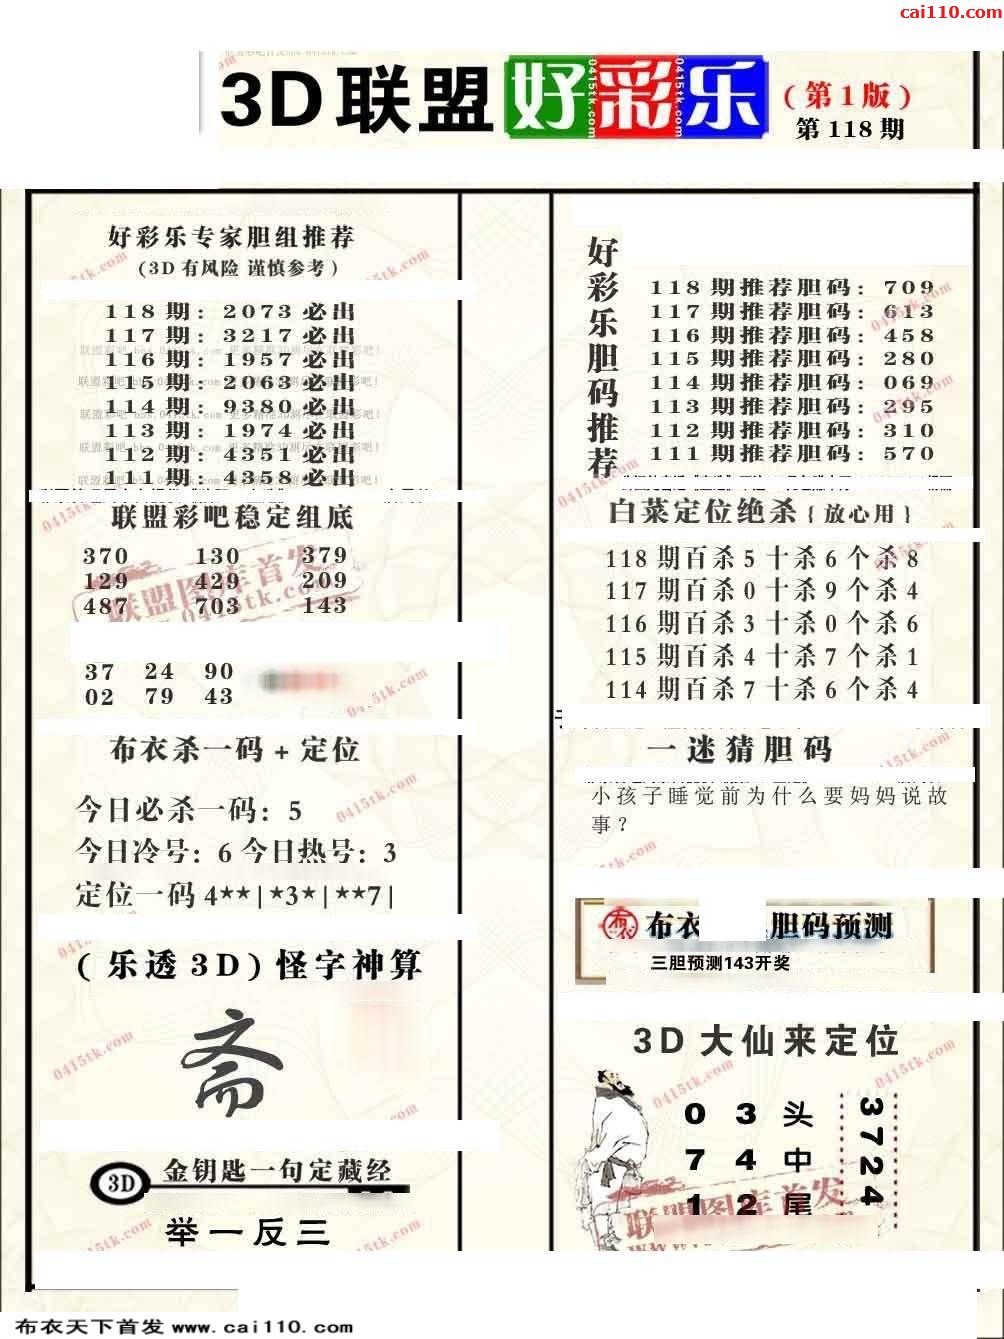 cai110.com
3D联盟好彩乐
(第1版)
第118期
好彩乐专家胆组推荐
(3D有风险 谨慎参考)
118期: 2073必出
117期: 3217必出
116期: 1957必出
115期: 2063必出
114期: 9380必出
113期: 1974必出
112期: 4351必出
111期: 4358必出
联盟彩吧稳定组底
370 130 379
129 429 209
487 703 143
37 24 90
02 79 43
布衣杀一码+定位
今日必杀一码: 5
今日冷号: 6 今日热号: 3
定位一码 4**|*3*|**7|
(乐透3D)怪字神算
斋
3D 金钥匙一句定藏经
举一反三
好彩乐胆码推荐
118期推荐胆码: 709
117期推荐胆码: 613
116期推荐胆码: 458
115期推荐胆码: 280
114期推荐胆码: 069
113期推荐胆码: 295
112期推荐胆码: 310
111期推荐胆码: 570
白菜定位绝杀{放心用}
118期百杀5十杀6个杀8
117期百杀0十杀9个杀4
116期百杀3十杀0个杀6
115期百杀4十杀7个杀1
114期百杀7十杀6个杀4
一迷猜胆码
小孩子睡觉前为什么要妈妈说故
事?
布衣 胆码预测
三胆预测143开奖
3D大仙来定位
0 3 头
7 4 中
1 2 尾
3724
联盟图库首发
0415tk.com
布衣天下首发 www.cai110.com